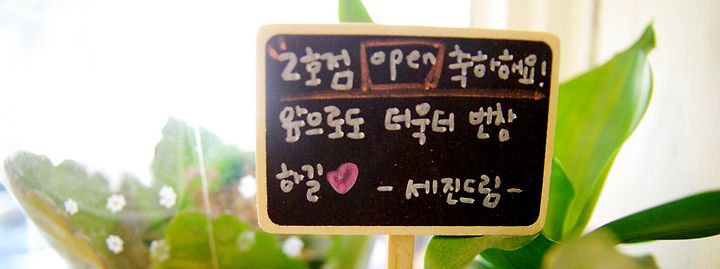 2호점 open 축하해요!
앞으로도 더욱더 번창
하길 - 세진드림 -